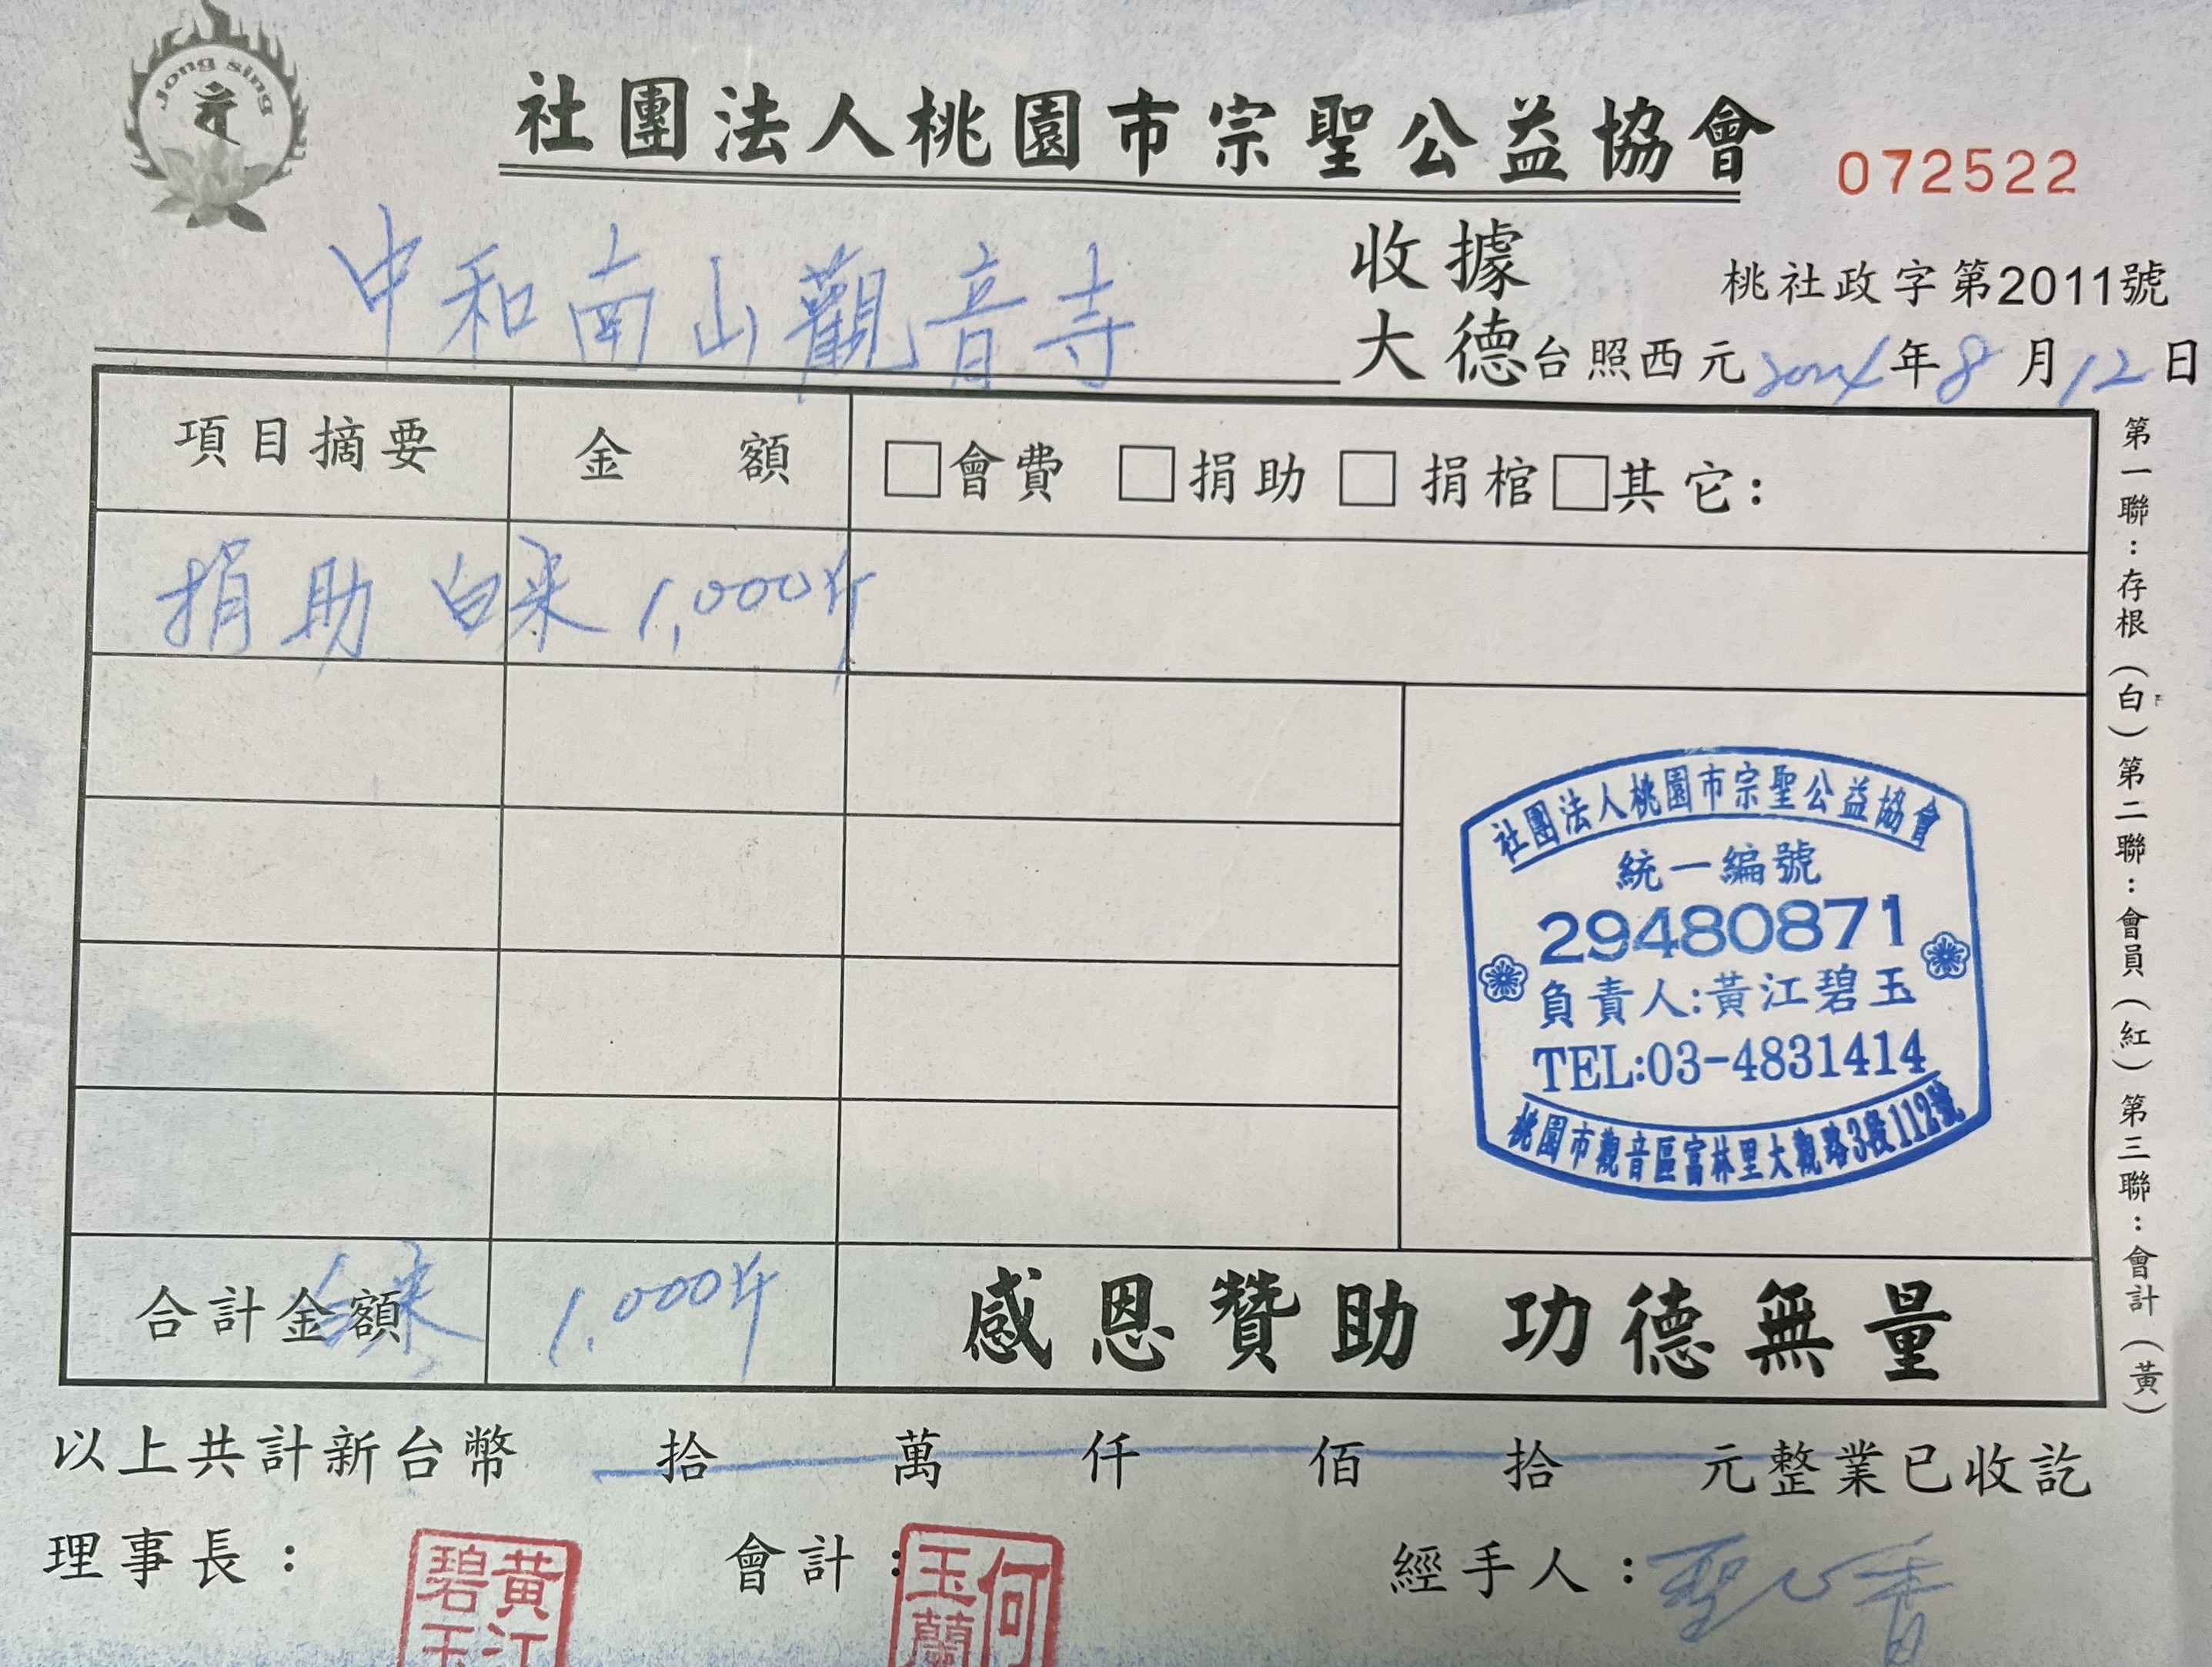 Jong sing
社團法人桃園市宗聖公益協會
072522
收據
桃社政字第2011號
中和南山觀音寺 大德台照西元2024年8月12日
項目摘要 金額 □會費 □捐助 □捐棺□其它:
捐助 白米 1,000斤
社團法人桃園市宗聖公益協會
統一編號
29480871
負責人:黃江碧玉
TEL:03-4831414
桃園市觀音區富林里大觀路3段112號
合計金額 白米 1,000斤 感恩贊助 功德無量
以上共計新台幣 拾 萬 仟 佰 拾 元整業已收訖
理事長: 黃江碧玉 會計: 何玉蘭 經手人:聖心香
第一聯:存根(白)第二聯:會員(紅)第三聯:會計(黃)